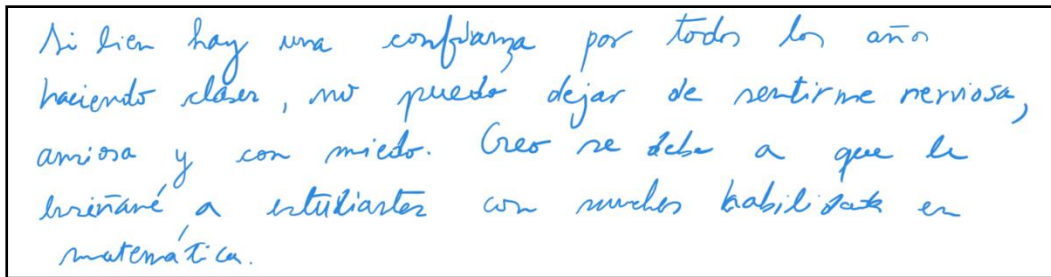 Si bien hay una confianza por todos los años
haciendo clases, no puedo dejar de sentirme nerviosa,
ansiosa y con miedo. Creo se debe a que le
enseñaré a estudiantes con muchas habilidades en
matemática.